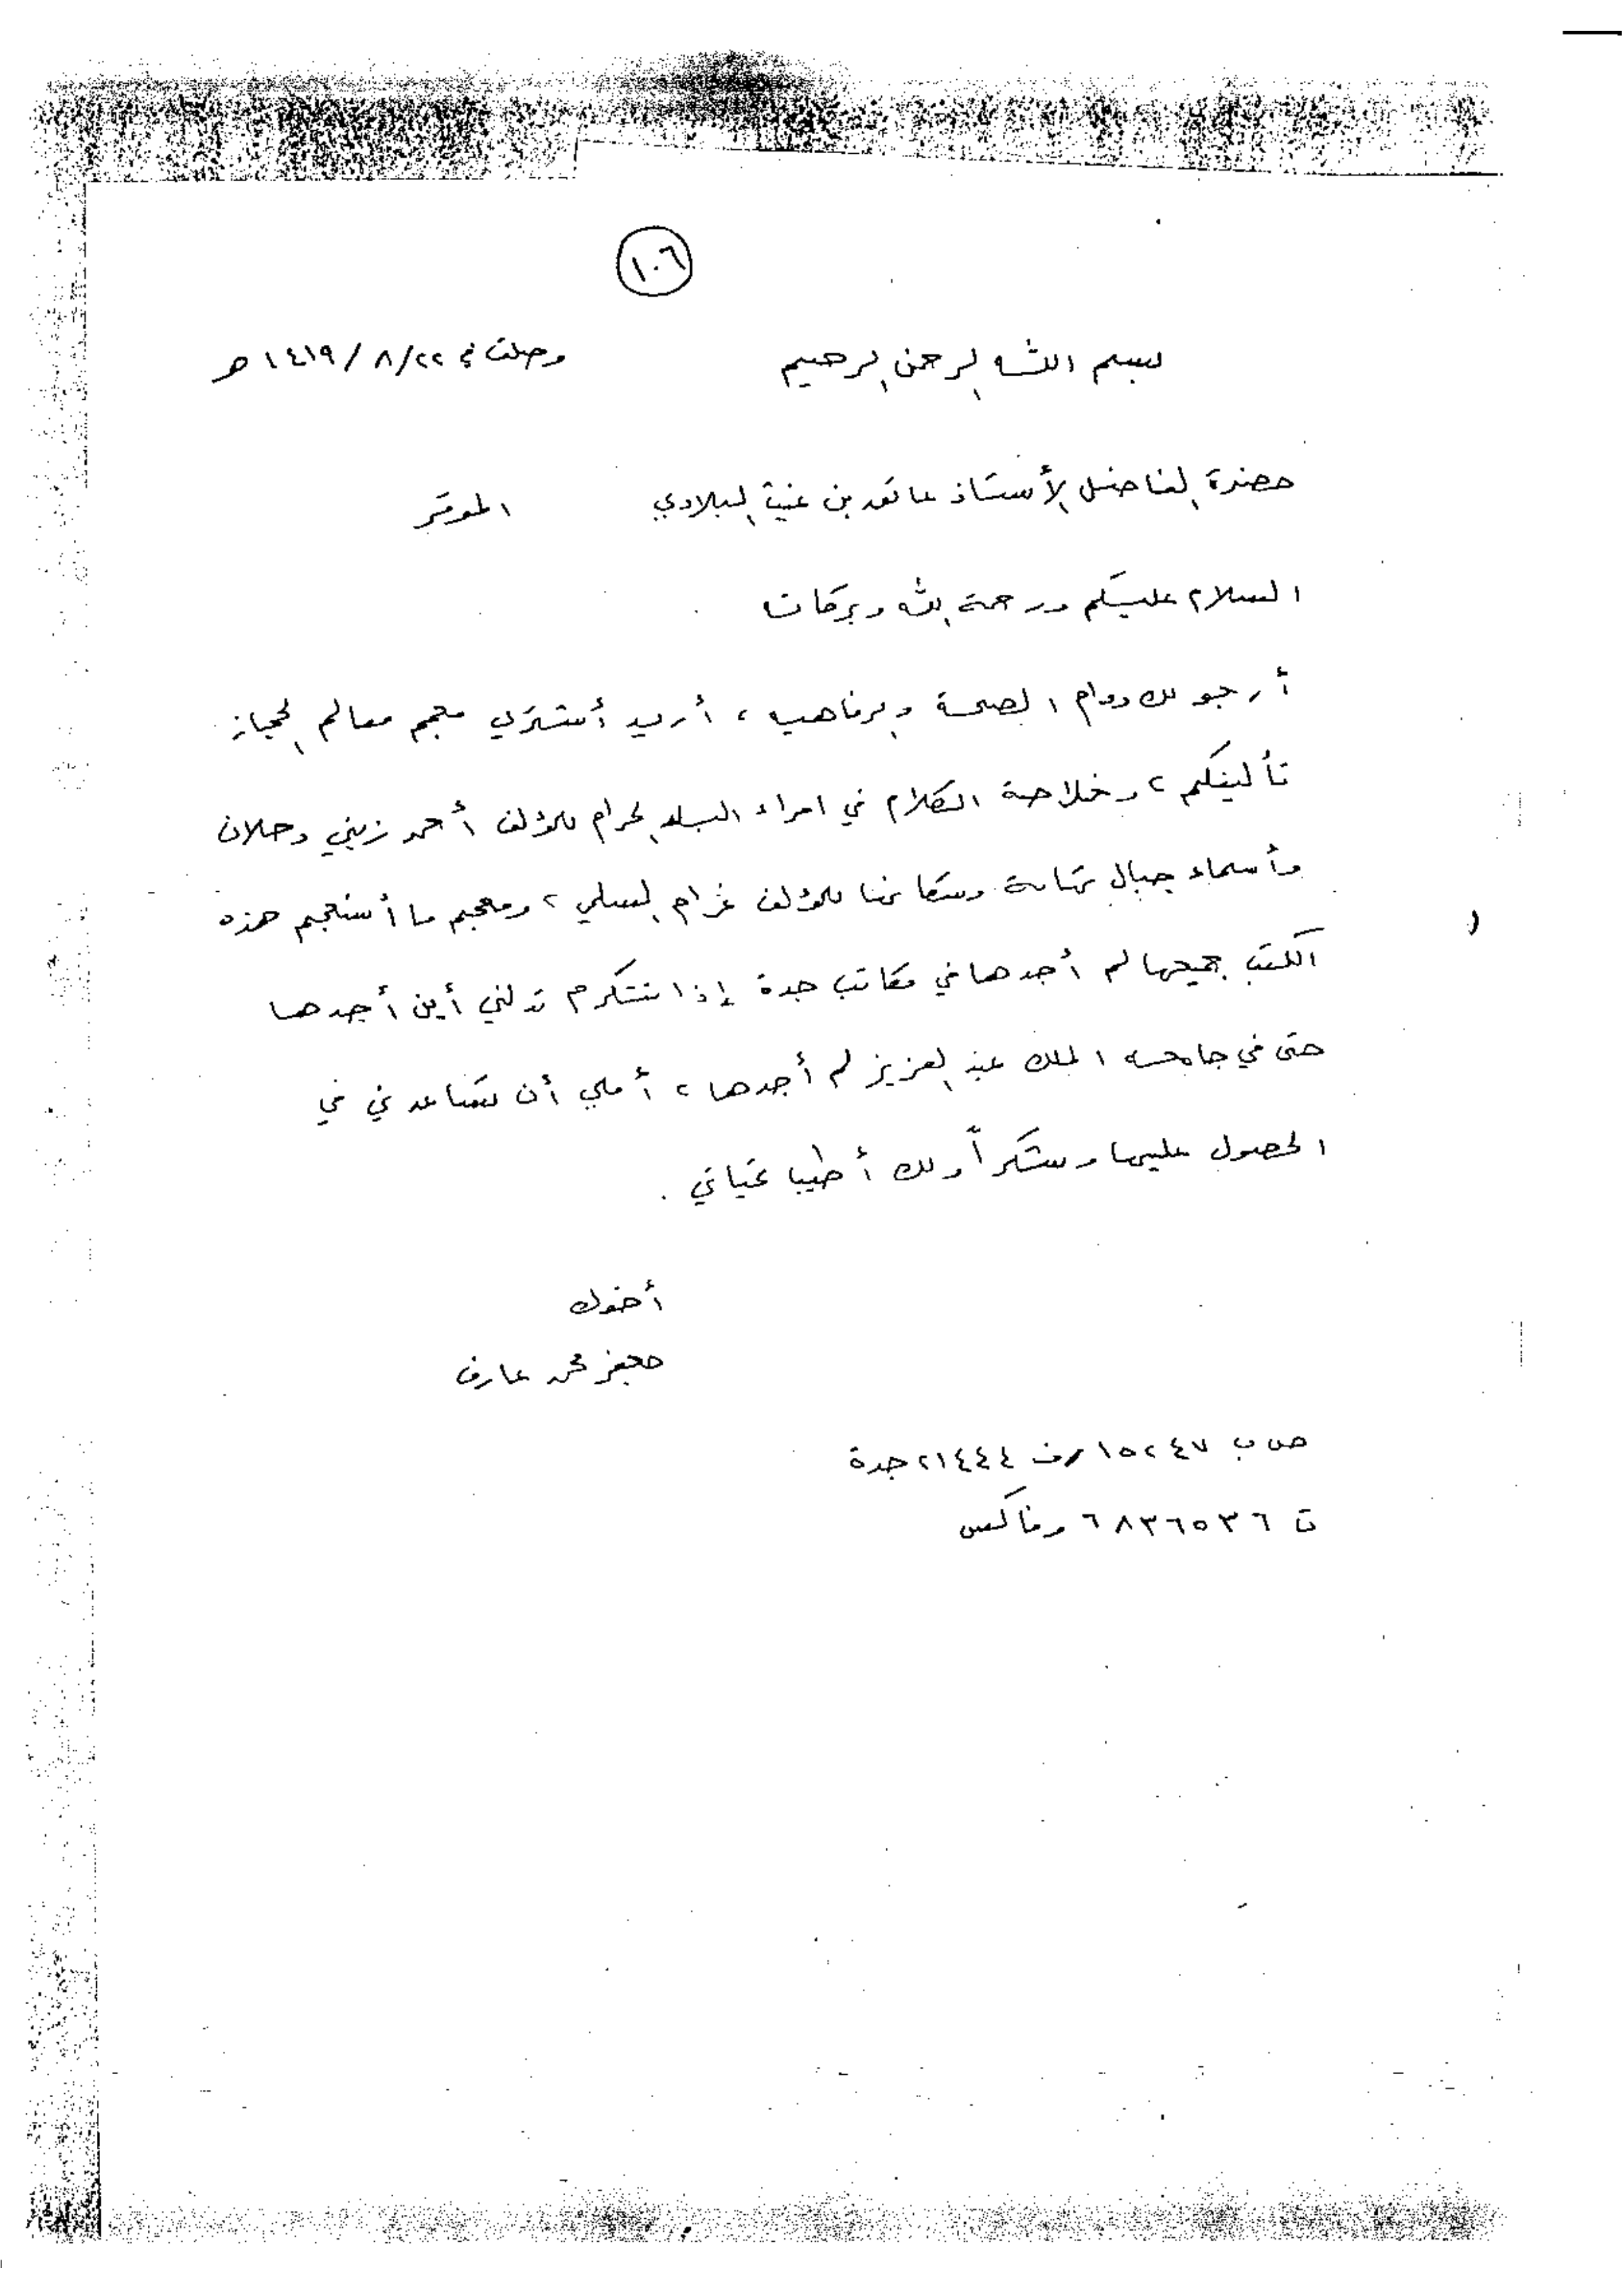 ١٠٦
بسم الله الرحمن الرحيم وصلت في ٢٢/٨/١٤١٩ هـ
حضرة الفاضل الأستاذ عاتق بن غيث البلادي الموقر
السلام عليكم ورحمة الله وبركاته
أرجو لك دوام الصحة والرفاهية، أريد أشتري معجم معالم الحجاز
تأليفكم، وخلاصة الكلام في امراء البلد الحرام للمؤلف أحمد زيني دحلان
وأسماء جبال تهامة وسكانها للمؤلف عرام السلمي، ومعجم ما أستعجم هذه
الكتب جميعها لم أجدها في مكاتب جدة إذا تتكرم تدلني أين أجدها
حتى في جامعة الملك عبد العزيز لم أجدها، أملي أن تساعدني في
الحصول عليها وشكراً ولك أطيب تحياتي.
أخوك
جعفر محمد عارف
ص ب ١٥٢٤٧ رف ٢١٤٤٤ جدة
ت ٦٨٣٦٥٣٦ وفاكس